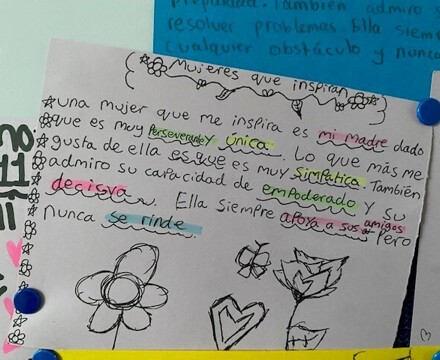 propiedad. También admiro s
resolver problemas. Ella siem
cualquier obstáculo y nunca
Mujeres que inspiran
una mujer que me inspira es mi madre dado
que es muy perseverado y única. Lo que más me
gusta de ella es que es muy simpática. También
admiro su capacidad de empoderado y su
decisva. Ella siempre apoya a sus amigos
nunca se rinde pero
no
11